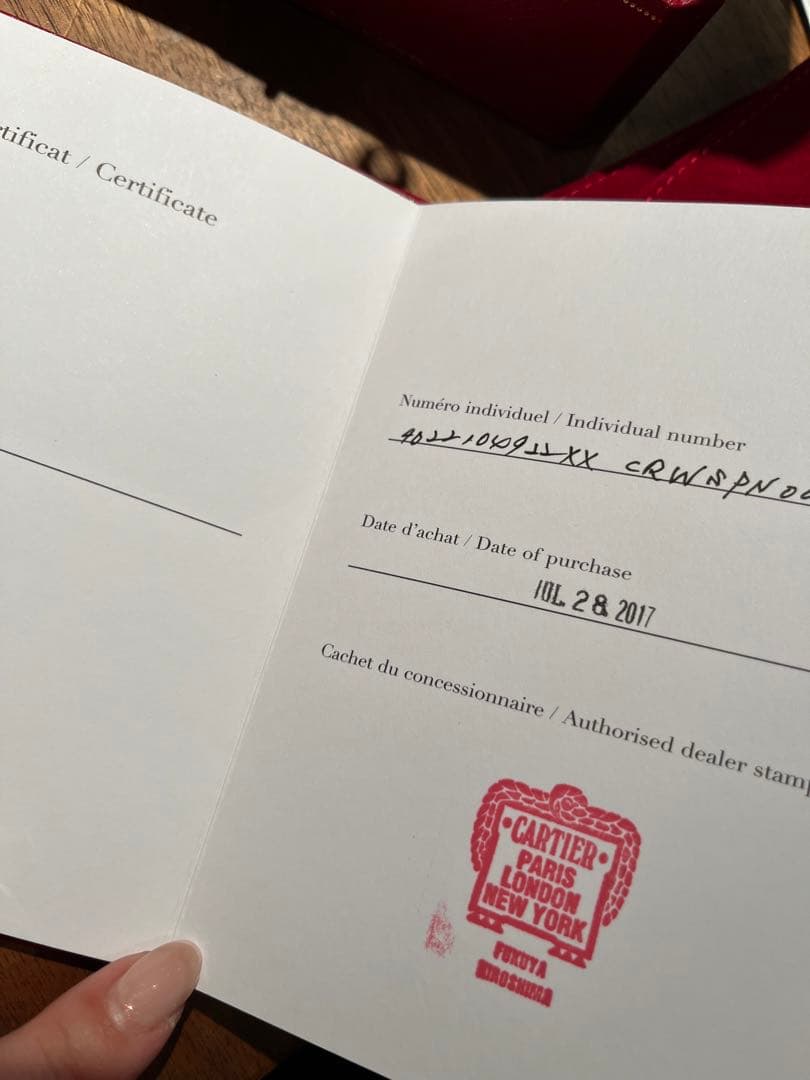 tificat / Certificate
Numéro individuel / Individual number
CRWSPN00
Date d'achat / Date of purchase
JUL 28 2017
Cachet du concessionnaire / Authorised dealer stamp
•CARTIER•
PARIS
LONDON
NEW YORK
FUKUYA
HIROSHIMA